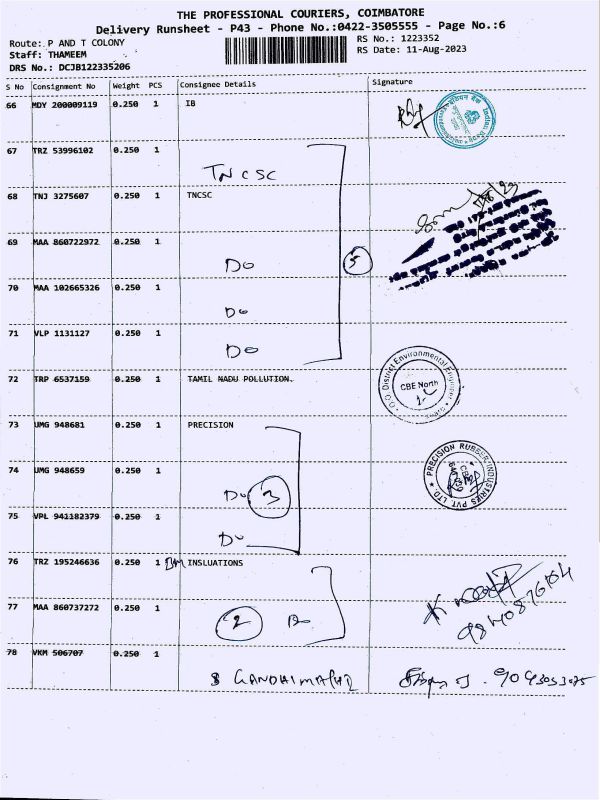 THE PROFESSIONAL COURIERS, COIMBATORE
Delivery Runsheet - P43 - Phone No.:0422-3505555 - Page No.:6
Route: P AND T COLONY
RS No.: 1223352
Staff: THAMEEM
RS Date: 11-Aug-2023
DRS No.: DCJB122335206
S No Consignment No Weight PCS Consignee Details Signature
66 MDY 200009119 0.250 1 IB
67 TRZ 53996102 0.250 1
TNCSC
68 TNJ 3275607 0.250 1 TNCSC
69 MAA 860722972 0.250 1
Do
5
70 MAA 102665326 0.250 1
Do
71 VLP 1131127 0.250 1
Do
72 TRP 6537159 0.250 1 TAMIL NADU POLLUTION.
District Environmental Engineer
CBE North
73 UMG 948681 0.250 1 PRECISION
PRECISION RUBBER INDUSTRIES PVT. LTD.
74 UMG 948659 0.250 1
Do
3
75 VPL 941182379 0.250 1
Do
76 TRZ 195246636 0.250 1 INSLUATIONS
77 MAA 860737272 0.250 1
2
Do
78 VKM 506707 0.250 1